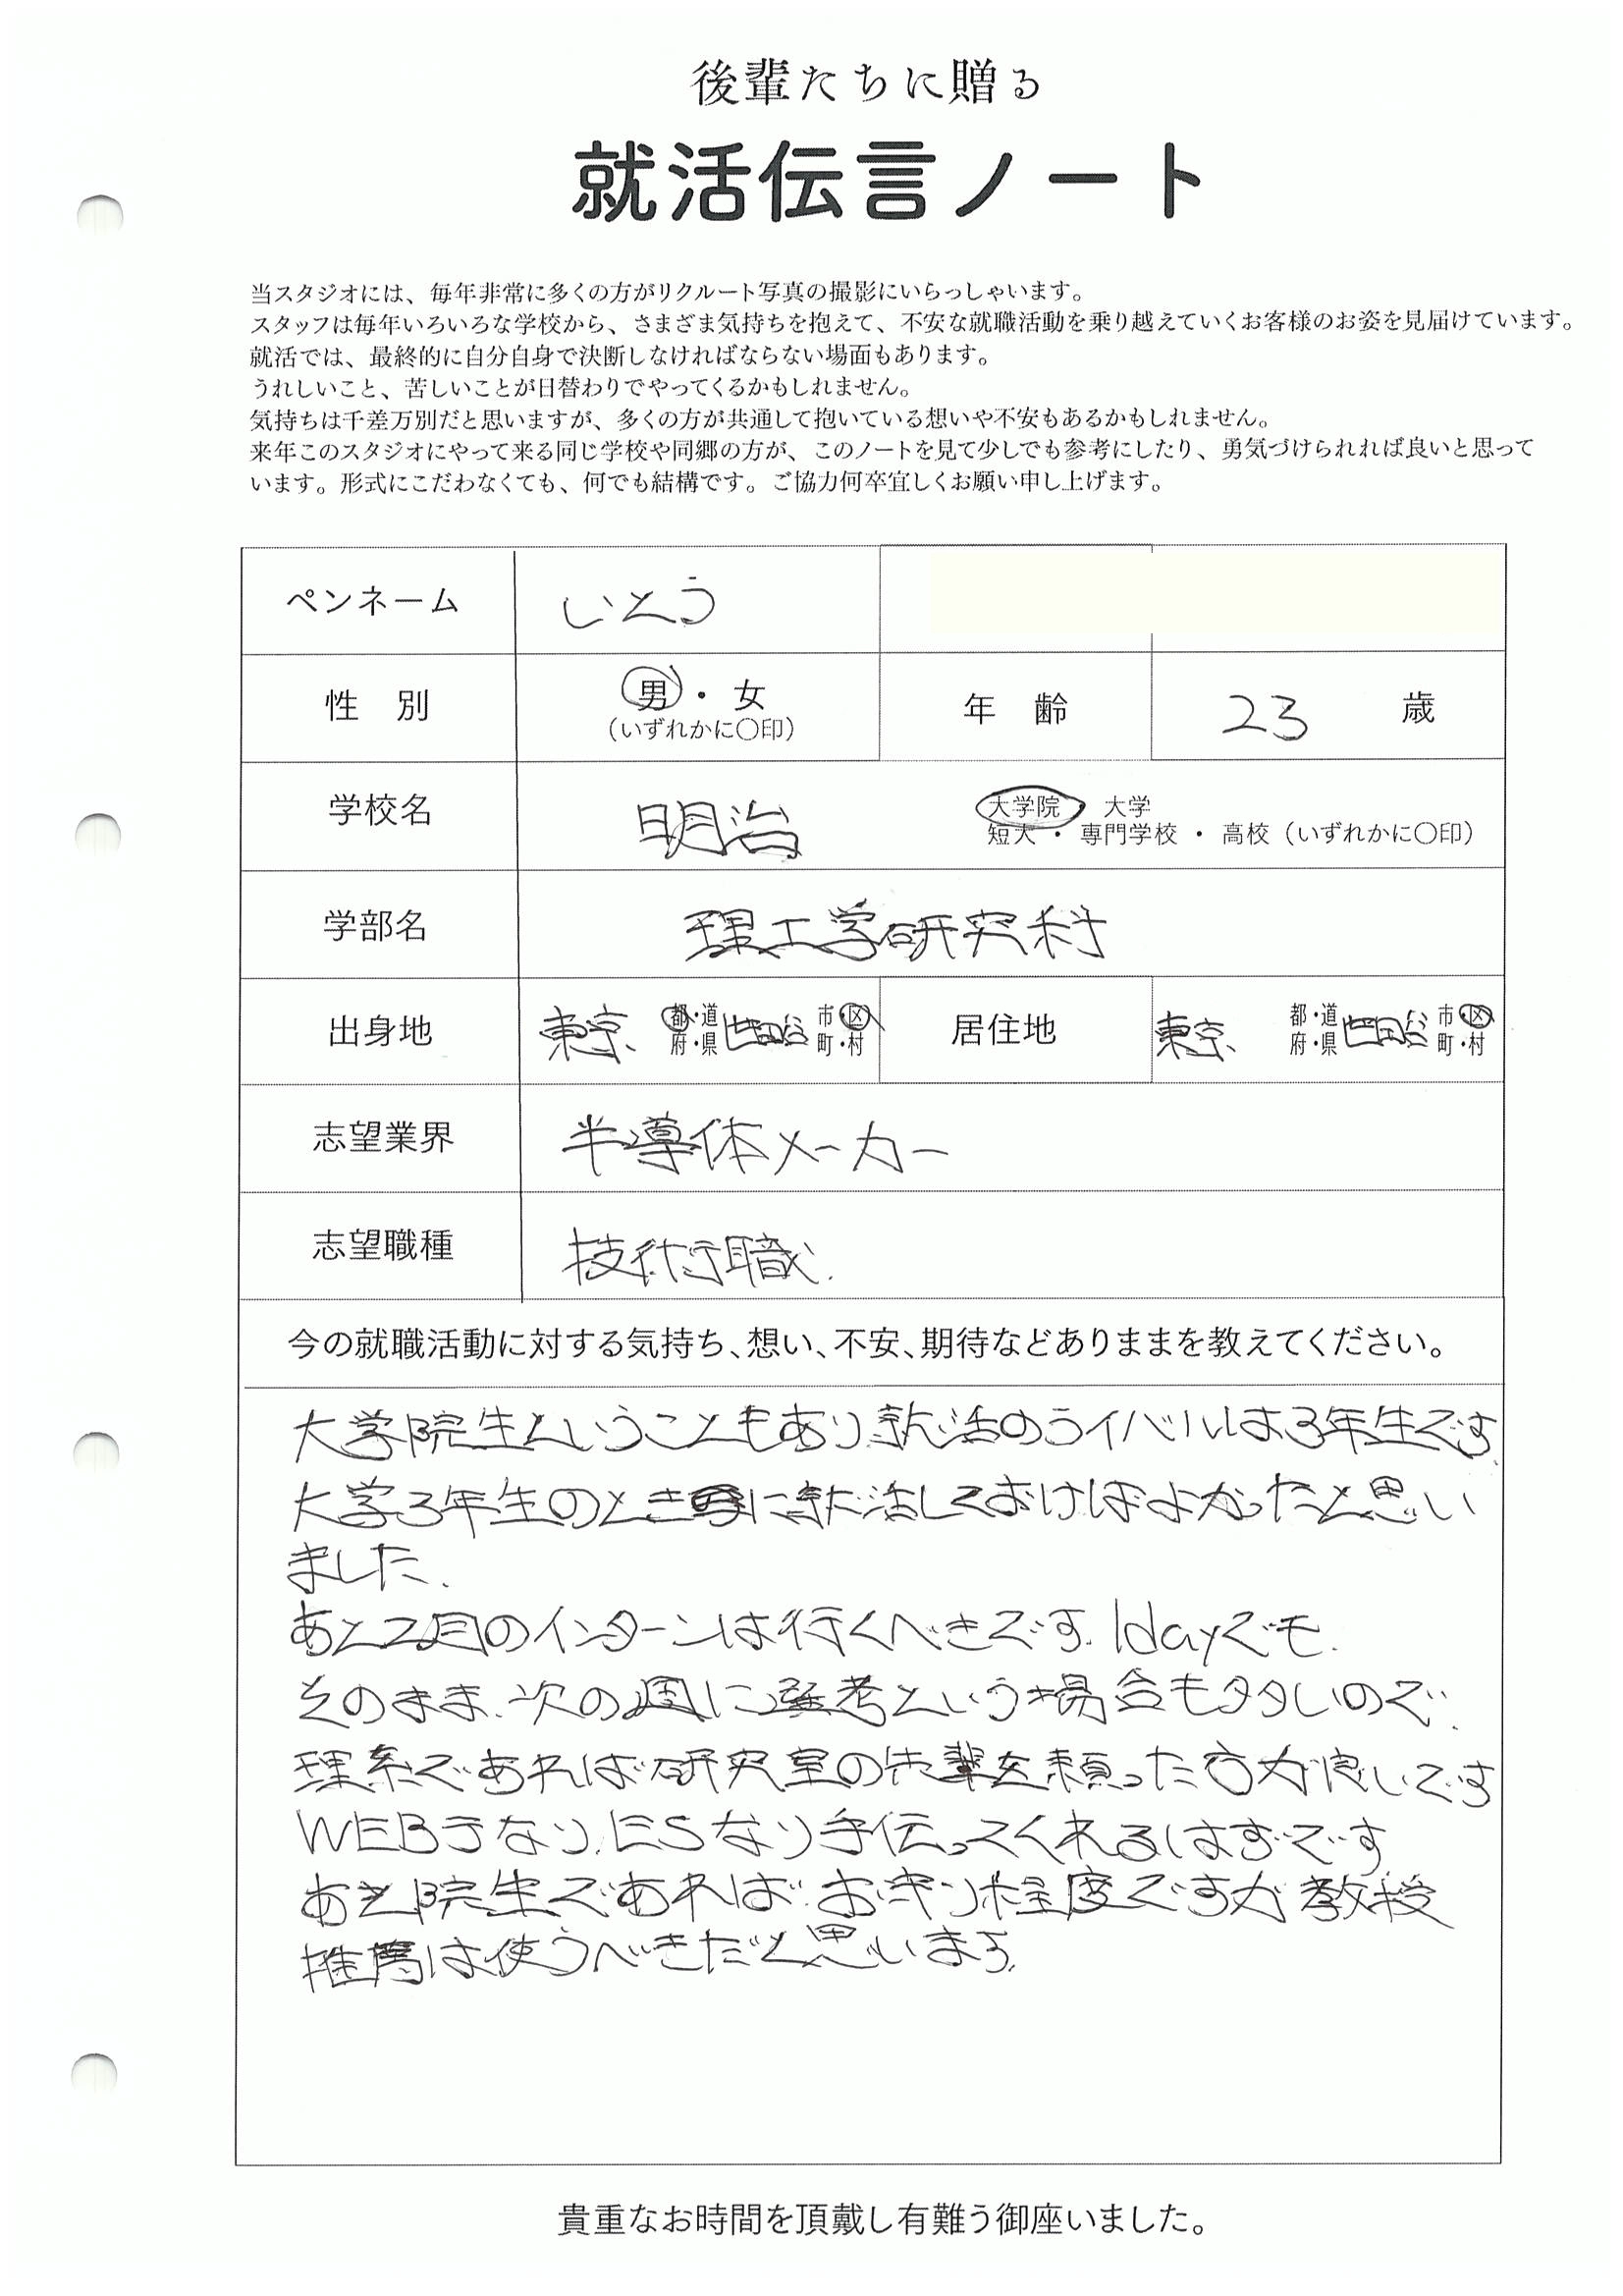 後輩たちに贈る
就活伝言ノート
当スタジオには、毎年非常に多くの方がリクルート写真の撮影にいらっしゃいます。
スタッフは毎年いろいろな学校から、さまざま気持ちを抱えて、不安な就職活動を乗り越えていくお客様のお姿を見届けています。
就活では、最終的に自分自身で決断しなければならない場面もあります。
うれしいこと、苦しいことが日替わりでやってくるかもしれません。
気持ちは千差万別だと思いますが、多くの方が共通して抱いている想いや不安もあるかもしれません。
来年このスタジオにやって来る同じ学校や同郷の方が、このノートを見て少しでも参考にしたり、勇気づけられれば良いと思って
います。形式にこだわなくても、何でも結構です。ご協力何卒宜しくお願い申し上げます。
ペンネーム いとう
性 別 男・女 (いずれかに〇印) 年 齢 23 歳
学校名 明治 大学院 大学
短大 ・ 専門学校 ・ 高校 (いずれかに〇印)
学部名 理工学研究科
出身地 東京 都・道 府・県 世田谷 市・区 町・村 居住地 東京 都・道 府・県 世田谷 市・区 町・村
志望業界 半導体メーカー
志望職種 技術職.
今の就職活動に対する気持ち、想い、不安、期待などありままを教えてください。
大学院生ということもあり、就活のライバルは3年生です.
大学3年生のとき に就活しておけばよかったと思い
ました.
あと2月のインターンは行くべきです. 1dayでも.
そのまま、次の週に選考という場合も多いので.
理系であれば研究室の先輩を頼った方が良いです
WEBテなり、ESなり手伝ってくれるはずです
あと院生であれば、お守り程度ですが教授
推薦は使うべきだと思いまる.
貴重なお時間を頂戴し有難う御座いました。